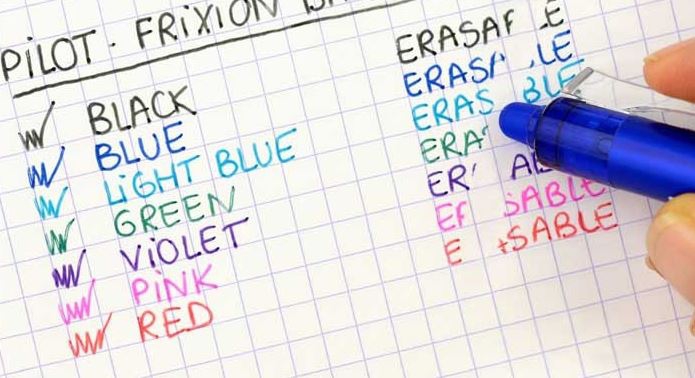 PiLOT - FRiXION
BLACK
BLUE
LiGHT BLUE
GREEN
ViOLET
PiNK
RED
ERASA E
ERAS LE
ERAS BLE
ERA
ER AB
E SABLE
E SABLE